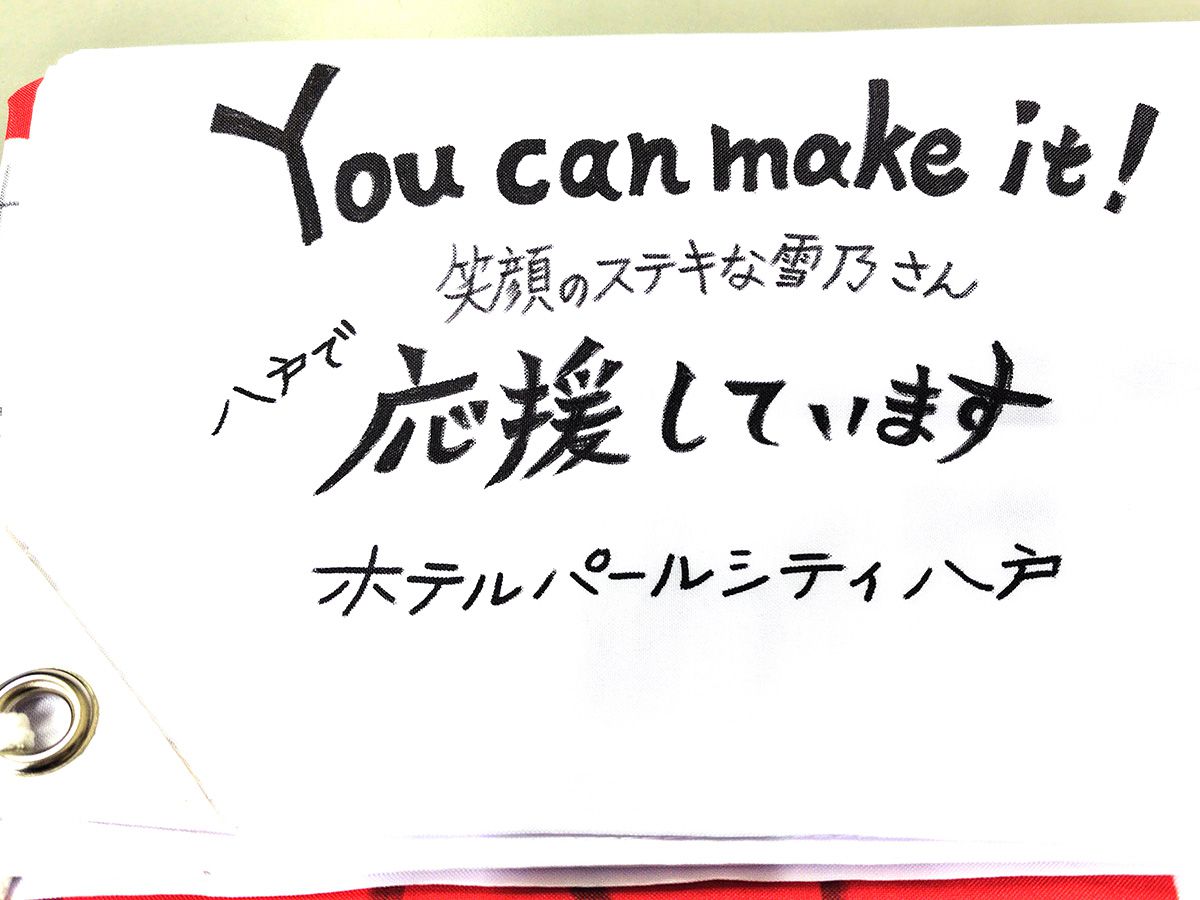 You can make it!
笑顔のステキな雪乃さん
八戸で
応援しています
ホテルパールシティ八戸